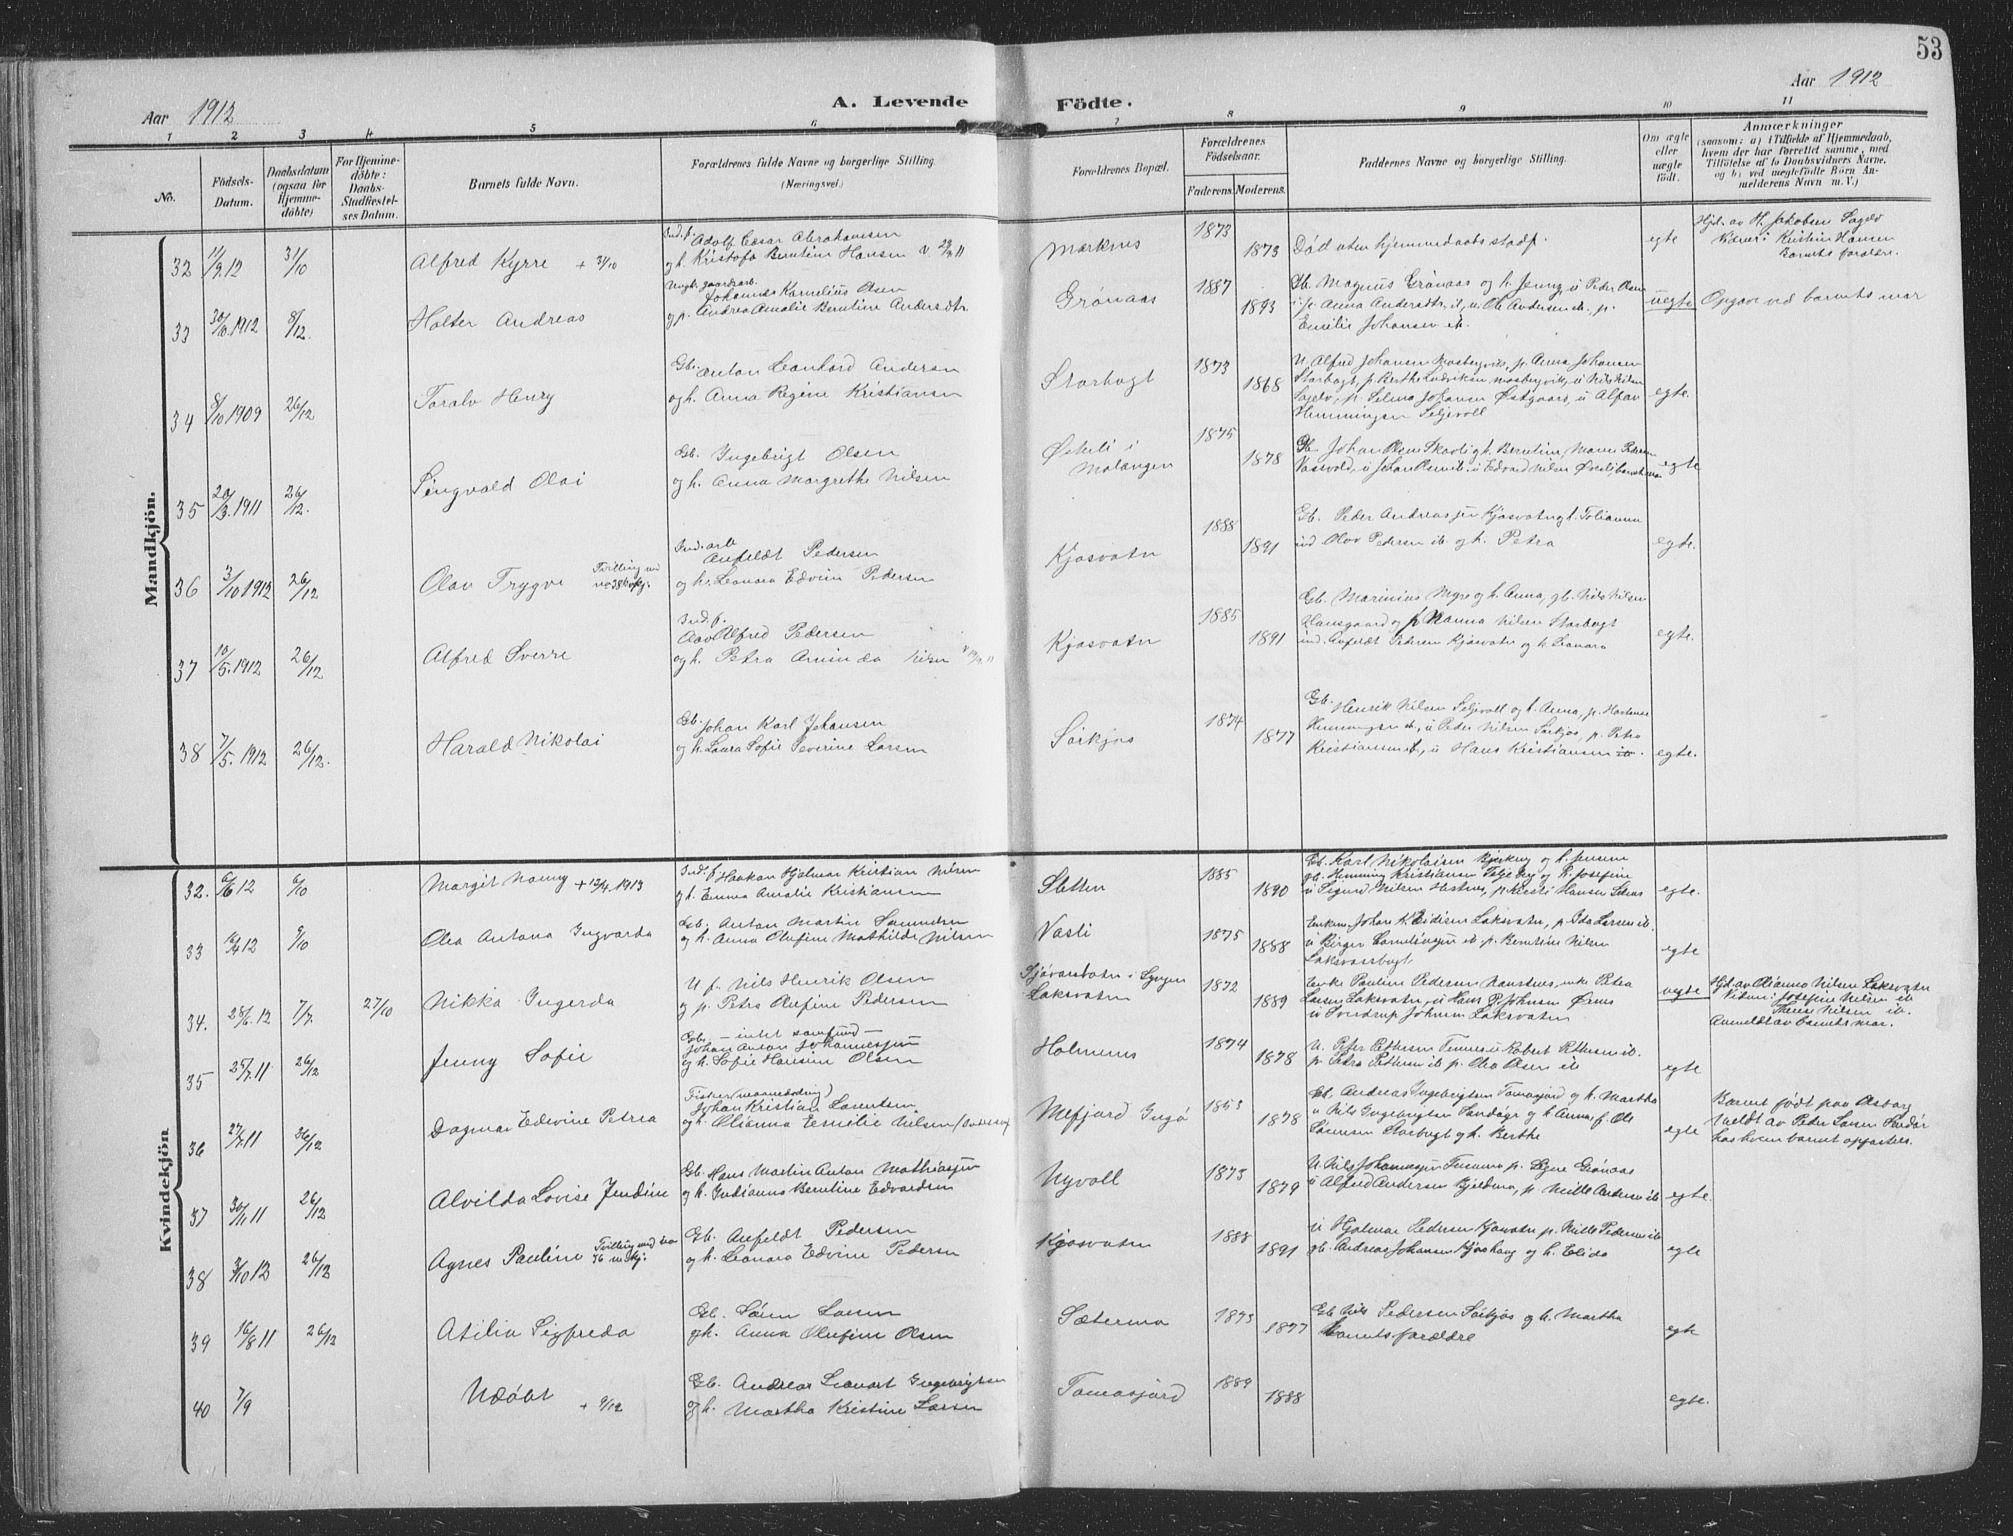 53
Aar 1912
A. Levende
Födte.
Aar 1912
1 2 3 4 5 6 7 8 9 10 11
No.
Födsels-
Datum.
Daabsdatum
(ogsaa for
Hjemme-
döbte)
For Hjemme-
döbte:
Daabs-
Stadfæstel-
ses Datum.
Barnets fulde Navn.
Forældrenes fulde Navne og borgerlige Stilling
(Næringsvei.)
Forældrenes Bopæl.
Forældrenes
Födselsaar.
Faderens. Moderens.
Faddernes Navne og borgerlige Stilling.
Om ægte
eller
uægte
födt.
Anmærkninger
(saasom: a) i Tilfælde af Hjemmedaab,
hvem der har forrettet samme, med
Tilföielse af to Daabsvidners Navne,
og b) ved uægtefödte Börn An-
melderens Navn m. V.)
Mandkjön.
32 11/9.12 31/10 Alfred Kyrre + 31/10
Ind. f. Adolf Cæsar Abrahamsen
og h. Kristofa Berntine Hansen
Marknes 1873 1873 Död uten hjemmedaabs stadf. egte
Hjd. av H. Jakobsen Sagelv
Vidner: Kristin Hansen
Barnets forældre.
33 30/6.1912 8/12. Halter Andreas
Ungk. gaardsarb.
Johannes Kornelius Olsen
og p. Andrea Amalie Berntine Andersdtr.
Grönaas 1887 1893
Gb. Magnus Grönaas og h. Jenny, u Peder Olsen
p. Anna Andersdtr. ib, u. Ole Andersen ib, p.
Emilie Johansen ib.
uegte Opgave ved barnets mor
34 8/10 1909 26/12 Toralv Henry
Gb. Anton Leonhard Andersen
og h. Anna Regine Kristiansen
Storbogt 1873 1868
U. Alfred Johansen Mosbergvik, p. Anna Johansen
Storbogt, p. Berthe Ludviksen Mosbergvik, u Nils Nilsen
Sagelv, p. Selma Johansen Östgaard, u Alfon
Hemmingsen Seljevoll
egte.
35 20/3.1911 26/12. Singvald Olai
Gb. Ingebrigt Olsen
og h. Anna Margrethe Nilsen
Östeli i
Malangen
1875 1878
Gb. Johan Olsen Skavli og h. Berntine, Maren Pedersen
egte
36 3/10 1912 26/12 Olav Trygve Tvilling med
no 38 kvkj.
Ind. arb
Anfeldt Pedersen
og h. Leonara Edvine Pedersen
Kjosvatn 1888 1891
Gb. Peder Andreassen Kjosvatn og h. Julianna
ind Olav Pedersen ib. og h. Petra
egte.
37 10/5.1912 26/12 Alfred Sverre
Ind. f.
Aav Alfred Pedersen
og h. Petra Aminda Nilsen
Kjosvatn 1885 1891
Gb. Marinius Myre og h. Anna, gb. Nils Nilsen
Hansgaard og p Nanna Nilsen Storbogt
ind. Anfeldt Pedersen Kjosvatn og h. Leonara
egte.
38 7/5.1912 26/12. Harald Nikolai
Gb. Johan Karl Johansen
og h. Laura Sofie Severine Larsen
Sörkjos 1874 1877
Gb. Henrik Nilsen Seljevoll og h. Anna, p. Hortense
Hemmingsen ib, u Peder Nilsen Sörkjos, p. Petra
Kristiansen ib, u Hans Kristiansen ib.
egte.
Kvindekjön
32. 6/6 12 6/10 Margit Nanny + 12/4.1913
Ind. f Haakon Hjalmar Kristian Nilsen
og h. Emma Amalie Kristiansen
Sletten 1885 1890
Gb. Karl Nikolaisen Bjerkeng og h. Jensine
gb. Hemming Kristiansen og h. Josefine
u Sigurd Nilsen Hestnes, p. Kirsti Hansen
egte.
33 12 9/10 Olea Antona Ingvarda
Gb. Anton Martin Samuelsen
og h. Anna Olufine Mathilde Nilsen
Vasli 1875 1888
Enkem. Johan K. Eidisen Laksvatn, p. Ida Larsen ib.
u Birger Cornelinssen ib. p. Berntine Nilsen
Laksvassbogt
egte
34. 28/6.12 7/7. 27/10 Nikka Ingerda
U f. Nils Henrik Olsen
og p. Petra Olufine Pedersen
Sjövasbotn i Lyngen
Laksvatn
1872 1889
Enke Pauline Pedersen Naustnes, enke Petra
Larsen Laksvatn, u Hans P. Johnsen Örnes
u Sverdrup Johnsen Laksvatn
uegte
Hjd. av Dianna Nilsen Laksvatn
Vidner: Josefine Nilsen ib
Therese Nilsen ib.
Anmeldt av barnets mor.
35 25/7.11 26/12 Jenny Sofie
Gb. — intet samfund —
Johan Anton Johannessen
og h. Sofie Hansine Olsen
Holmenes 1874 1878
U. Peter Pettersen Tennes u Robert Pettersen ib.
p. Petra Pettersen ib p. Olea Olsen ib
egte
36 27/7.11 26/12 Dagmar Edevine Petrea
Fisker
Johan Kristian Lorentsen
og h. Olianna Emelie Nilsen
Mefjord Ingö 1853 1878
Gb. Andreas Ingebrigtsen Tomasjord og h. Martha
u Nils Ingebrigtsen Sandöge og h Anna, f. Ole
Sörensen Storbogt og h. Berthe
egte
Barnet födt paa
meldt av Peter Larsen
hos hvem barnet opfostres.
37 30/11.11 26/12 Alvilda Lovise Jendine
Gb. Hans Martin Anton Mathiassen
og h. Indianna Berntine Edvardsen
Nyvoll 1873 1879
U. Nils Johannessen Temmen p. Signe Grönaas
u Alfred Andersen Bjeldnes, p. Mille Andersen ib
egte.
38 3/10 12 26/12 Agnes Pauline Tvilling med no
36 m. kj.
Gb. Anfeldt Pedersen
og h. Leonara Edvine Pedersen
Kjosvatn 1888 1891
U Hjalmar Pedersen Kjosvatn p. Mille Pedersen ib
gb. Andreas Johansen Kjoshaug og h. Elida
egte
39 16/8 11 26/12 Atilia Sigfreda
Gb. Sören Larsen
og h. Anna Olufine Olsen
Sæterma 1873 1877
Gb Nils Pedersen Sörkjos og h. Martha
Barnets forældre
egte
40 7/9 Udöbt + 9/12
Gb. Andreas Leonart Ingebrigtsen
og h. Martha Kristine Larsen
Tomasjord 1889 1888 egte.